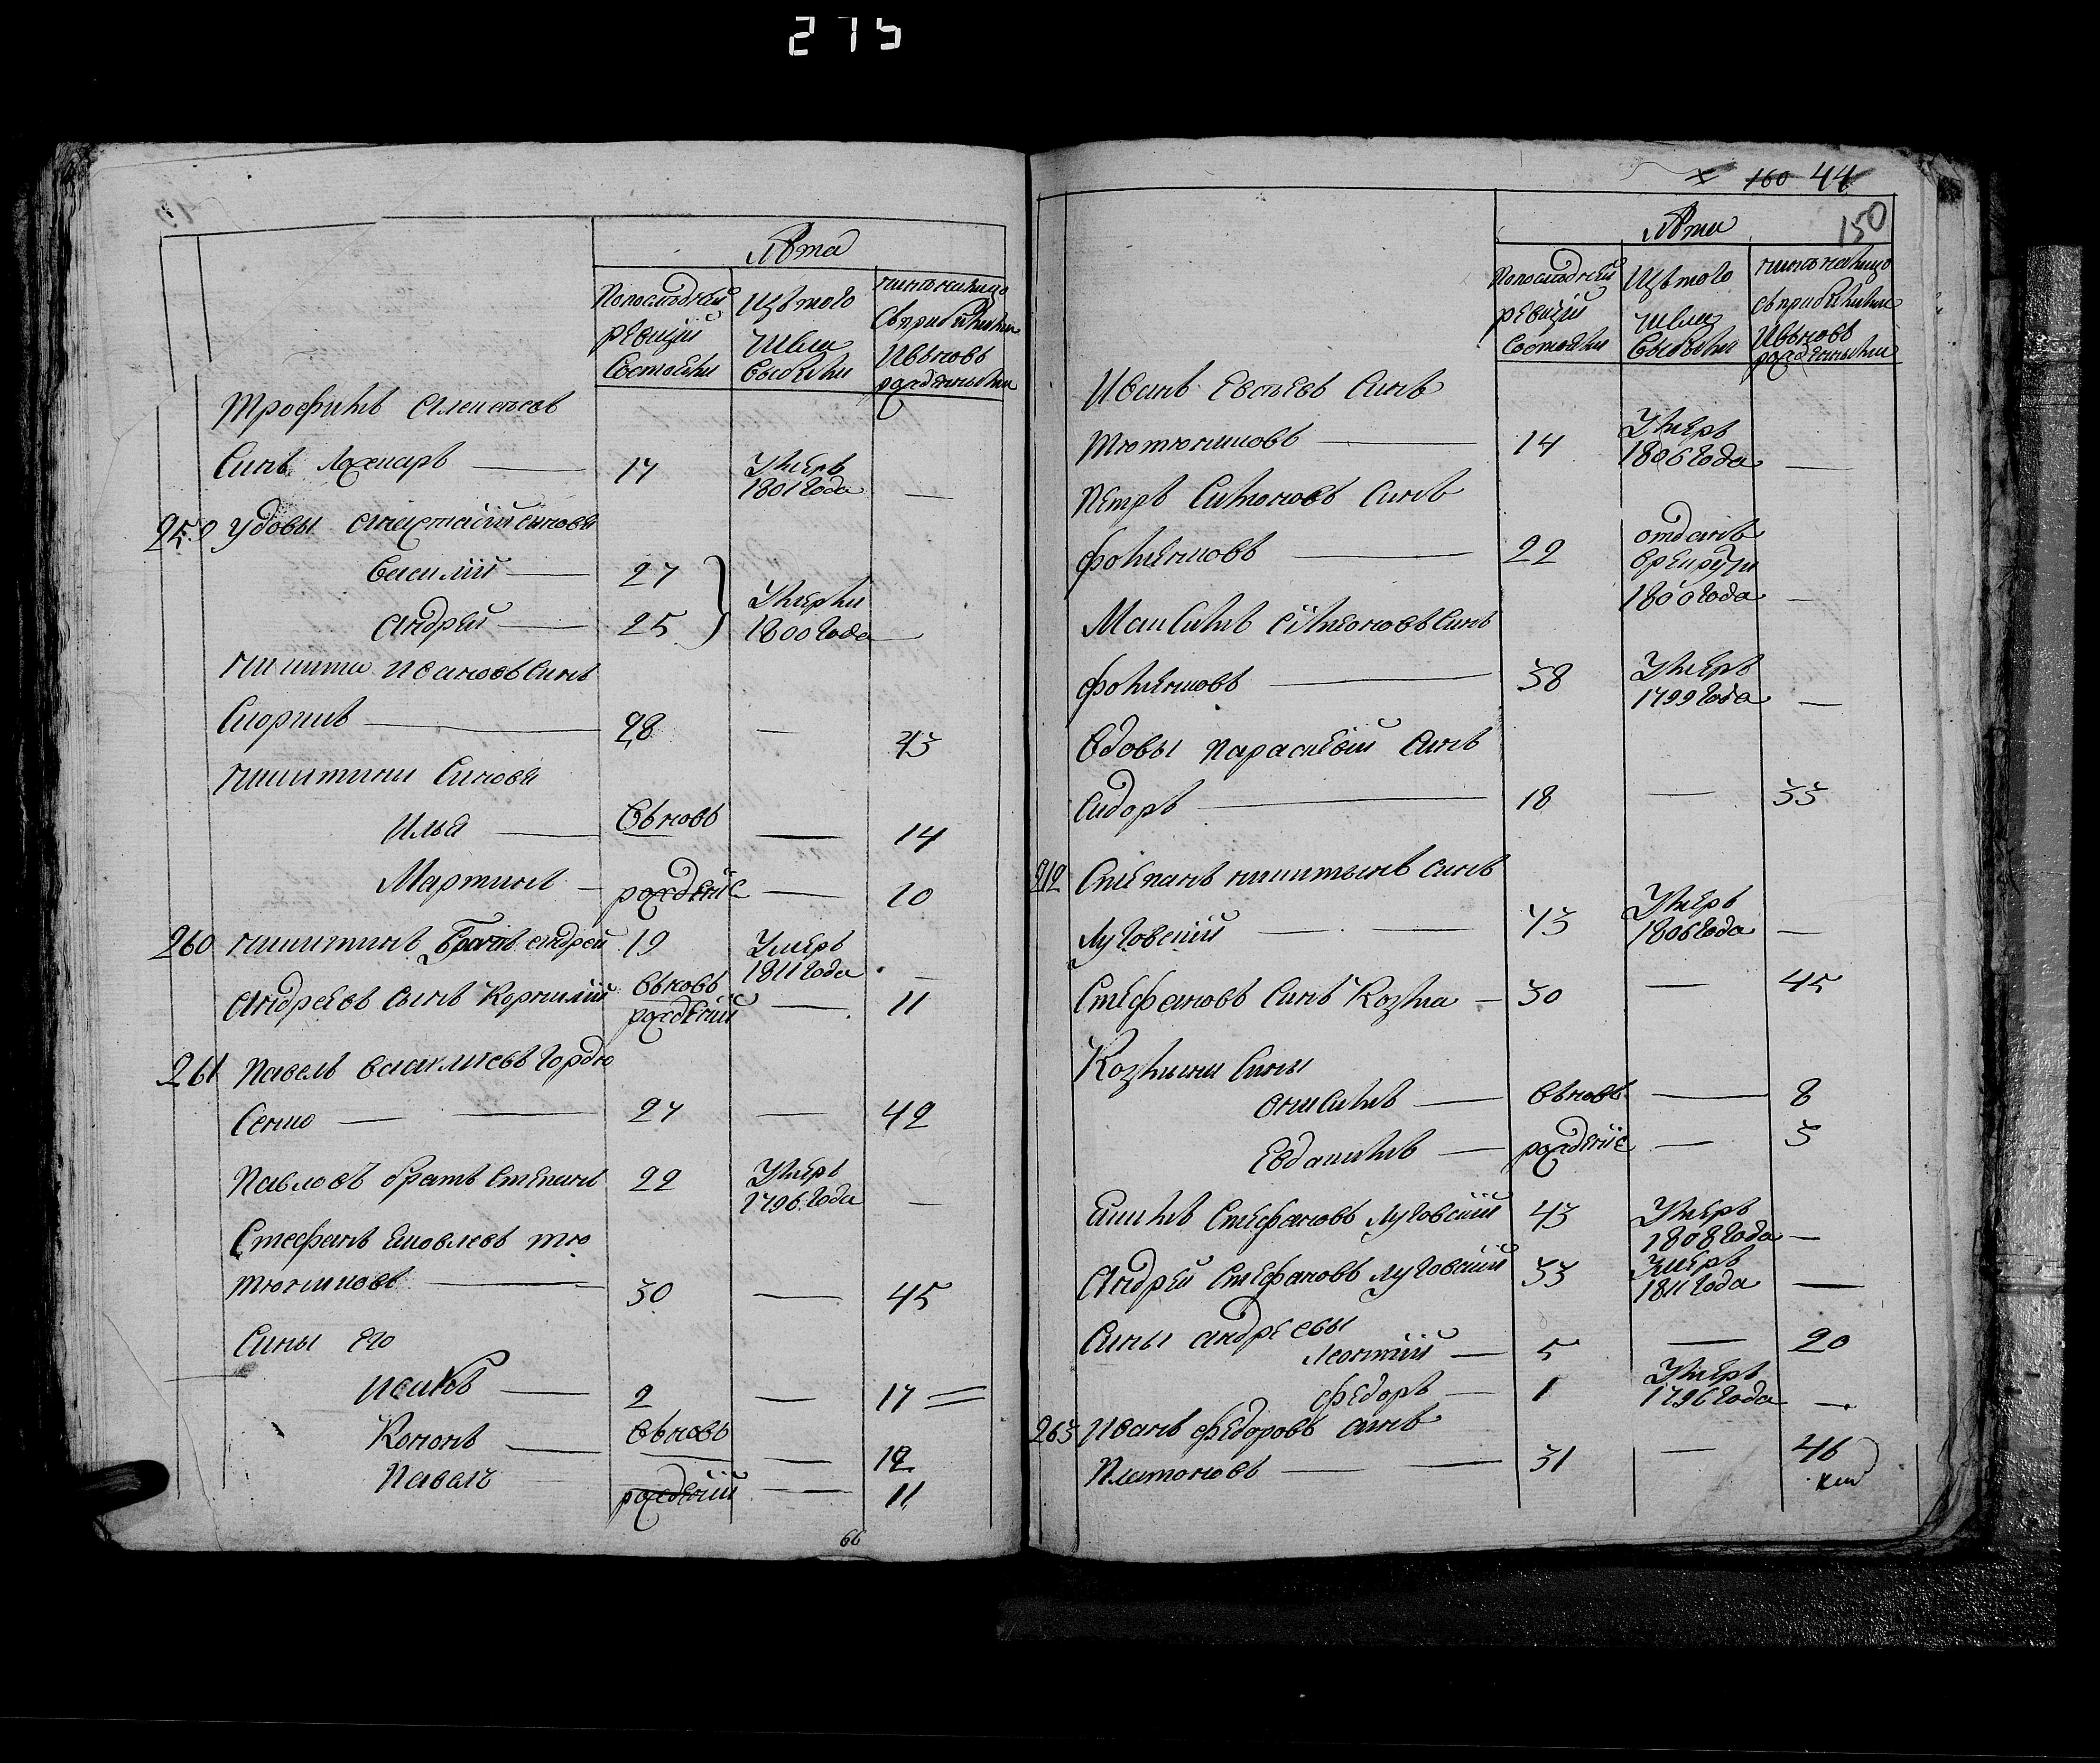 275
Лѣта
Попослѣдней
ревизіи
Состояли
Изътого
числа
выбыли
нынѣналицо
съприбылыми
ивьновь
рожденными
Трофимъ Алексѣевъ
Синъ Лохмаръ 17 Умеръ
1801 года
259 удовы Анастасіи синовя
Василій 27
Андрей 25 Умерли
1800 года
Никита Ивановъ Синъ
Скоринъ 28 43
Никитини Синовя
Илья Вьновь 14
Мартинъ рожденіе 10
260 Никитинъ братъ андрей 19 Умеръ
1811 года
Андреевъ сынъ Корнилій вьновь
рожденій 11
261 Павелъ василиевъ Гордю
Сенко 27 42
Павловъ братъ Степанъ 22 Умеръ
1796 года
Стефанъ Яковлевъ тю
тюнниковъ 30 45
Сины его
Исакъ 2 17
Кононъ Вьновь 12
Павелъ рожденій 11
66
160 44
150
Лѣта
Попослѣдней
ревизіи
Состояли
Изътого
числа
выбыли
нынѣналицо
съприбылыми
ивьновь
рожденными
Иванъ Евсѣевъ Синъ
Тютюнниковъ 14 Умеръ
1806 года
Петръ Симоновъ Синъ
Фоменковъ 22 отданъ
врекруты
1800 года
Максимъ Сімеоновъ Синъ
Фоменковъ 38 Умеръ
1799 года
Вдовы Параскевіи Синъ
Сидоръ 18 33
212 Степанъ никитынъ синъ
Луговскій 43 Умеръ
1806 года
Стефановъ Синъ Козма 30 45
Козмини Сины
Онисимъ вьновь 8
Евдокимъ рожденіе 3
Екимъ Стефановъ Луговскій 43 Умеръ
1808 года
Андрей Стефановъ Луговскій 33 Умеръ
1811 года
Сины андреевы
Леонтій 5 20
Федоръ 1 Умеръ
1796 года
263 Иванъ Федоровъ синъ
Платоновъ 31 46